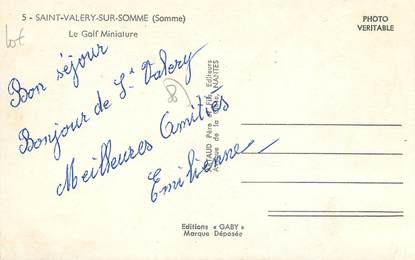 5 - SAINT-VALERY-SUR-SOMME (Somme)
Le Golf Miniature
PHOTO
VERITABLE
lot
Bon séjour
Bonjour de St Valery
Meilleures Amitiés
Emilienne
8
ARTAUD Père Fils, Editeurs
Avenue de la NANTES
Editions « GABY »
Marque Déposée